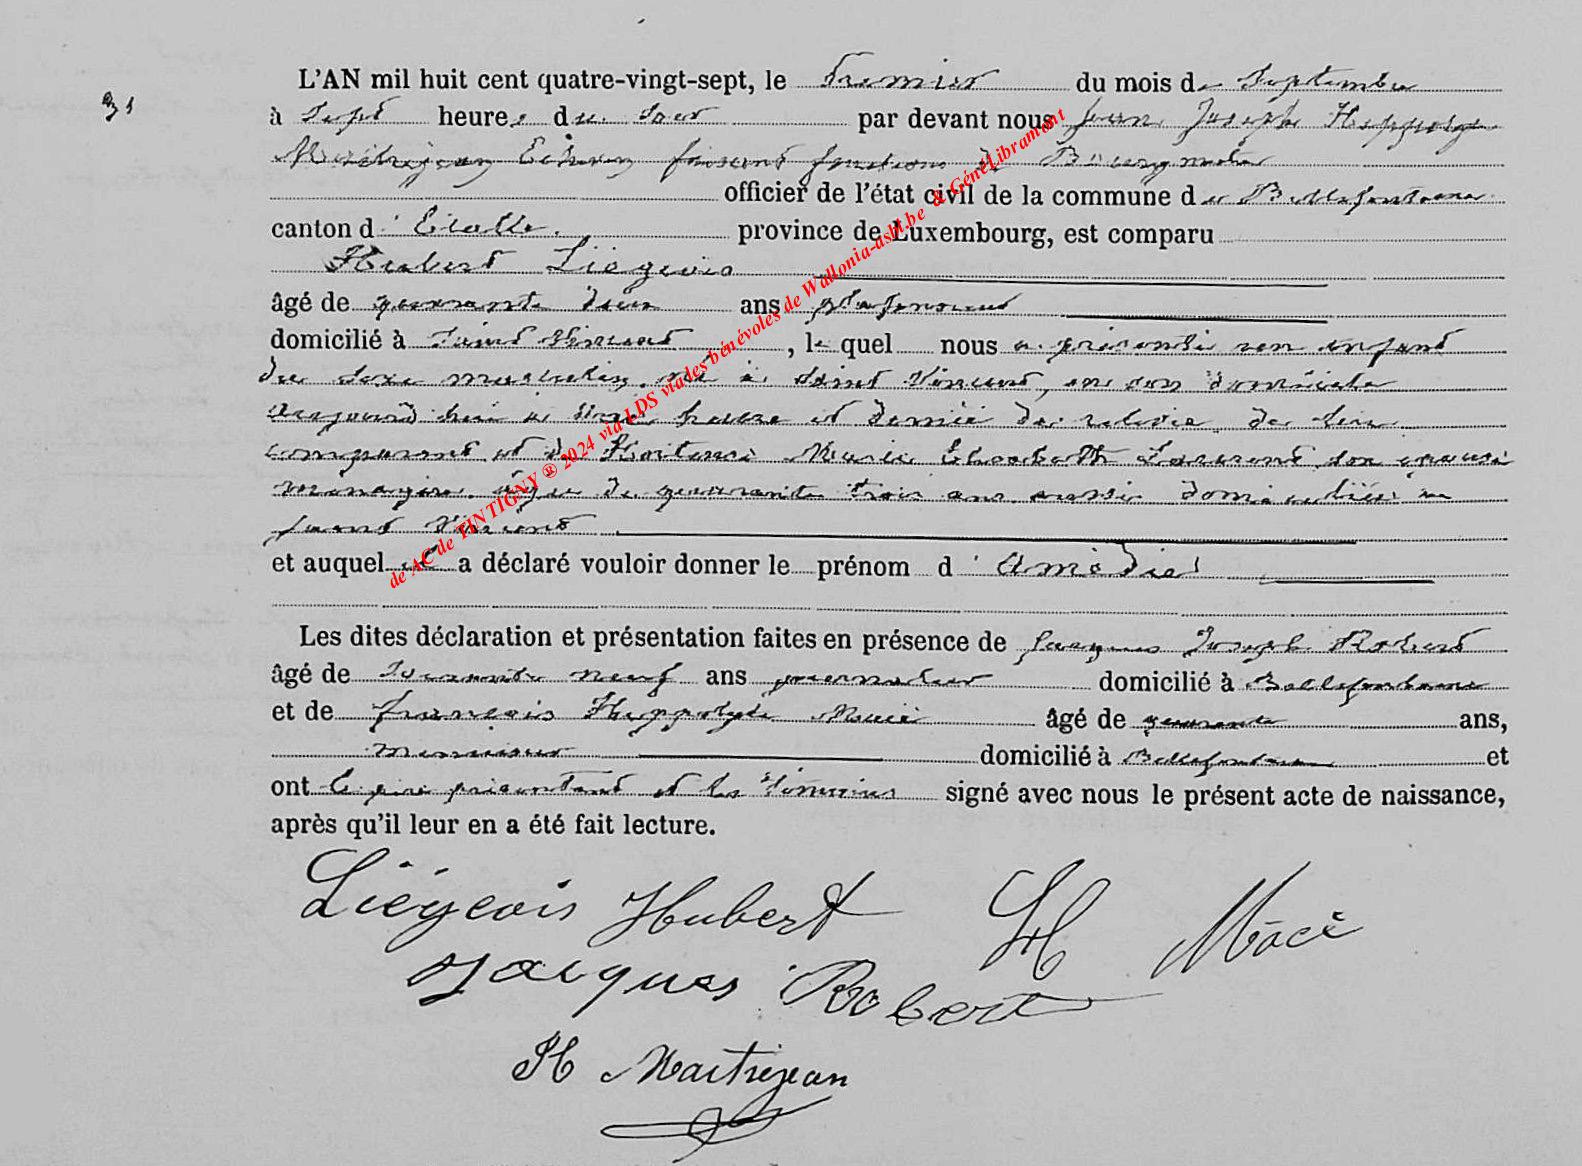 31
L'AN mil huit cent quatre-vingt-sept, le premier du mois de Septembre
à Sept heures du soir par devant nous Jean Joseph Hippolyte
Maitrejean Echevin faisant fonctions de Bourgmestre
officier de l'état civil de la commune de Bellefontaine
canton d'Etalle. province de Luxembourg, est comparu
Hubert Liégeois
âgé de quarante deux ans plafonneur
domicilié à Saint Vincent, lequel nous a présenté un enfant
du sexe masculin, né à Saint Vincent, en son domicile
aujourd'hui à heure et demie de relevée, de lui
comparant et de Hortense Marie Elisabeth Laurent son épouse
ménagère, âgée de quarante trois ans aussi domiciliée à
Saint Vincent
et auquel il a déclaré vouloir donner le prénom d'Amédée
Les dites déclaration et présentation faites en présence de Jacques Joseph Robert
âgé de soixante neuf ans journalier domicilié à Bellefontaine
et de françois Hippolyte Macé âgé de quarante ans,
menuisier domicilié à Bellefontaine et
ont le père présentant et les témoins signé avec nous le présent acte de naissance,
après qu'il leur en a été fait lecture.
Liégeois Hubert H Macé
Jacques Robert
H Maitrejean
de AC de TINTIGNY ® 2024 via LDS via des bénévoles de Wallonia-asbl.be & GénéLibramont